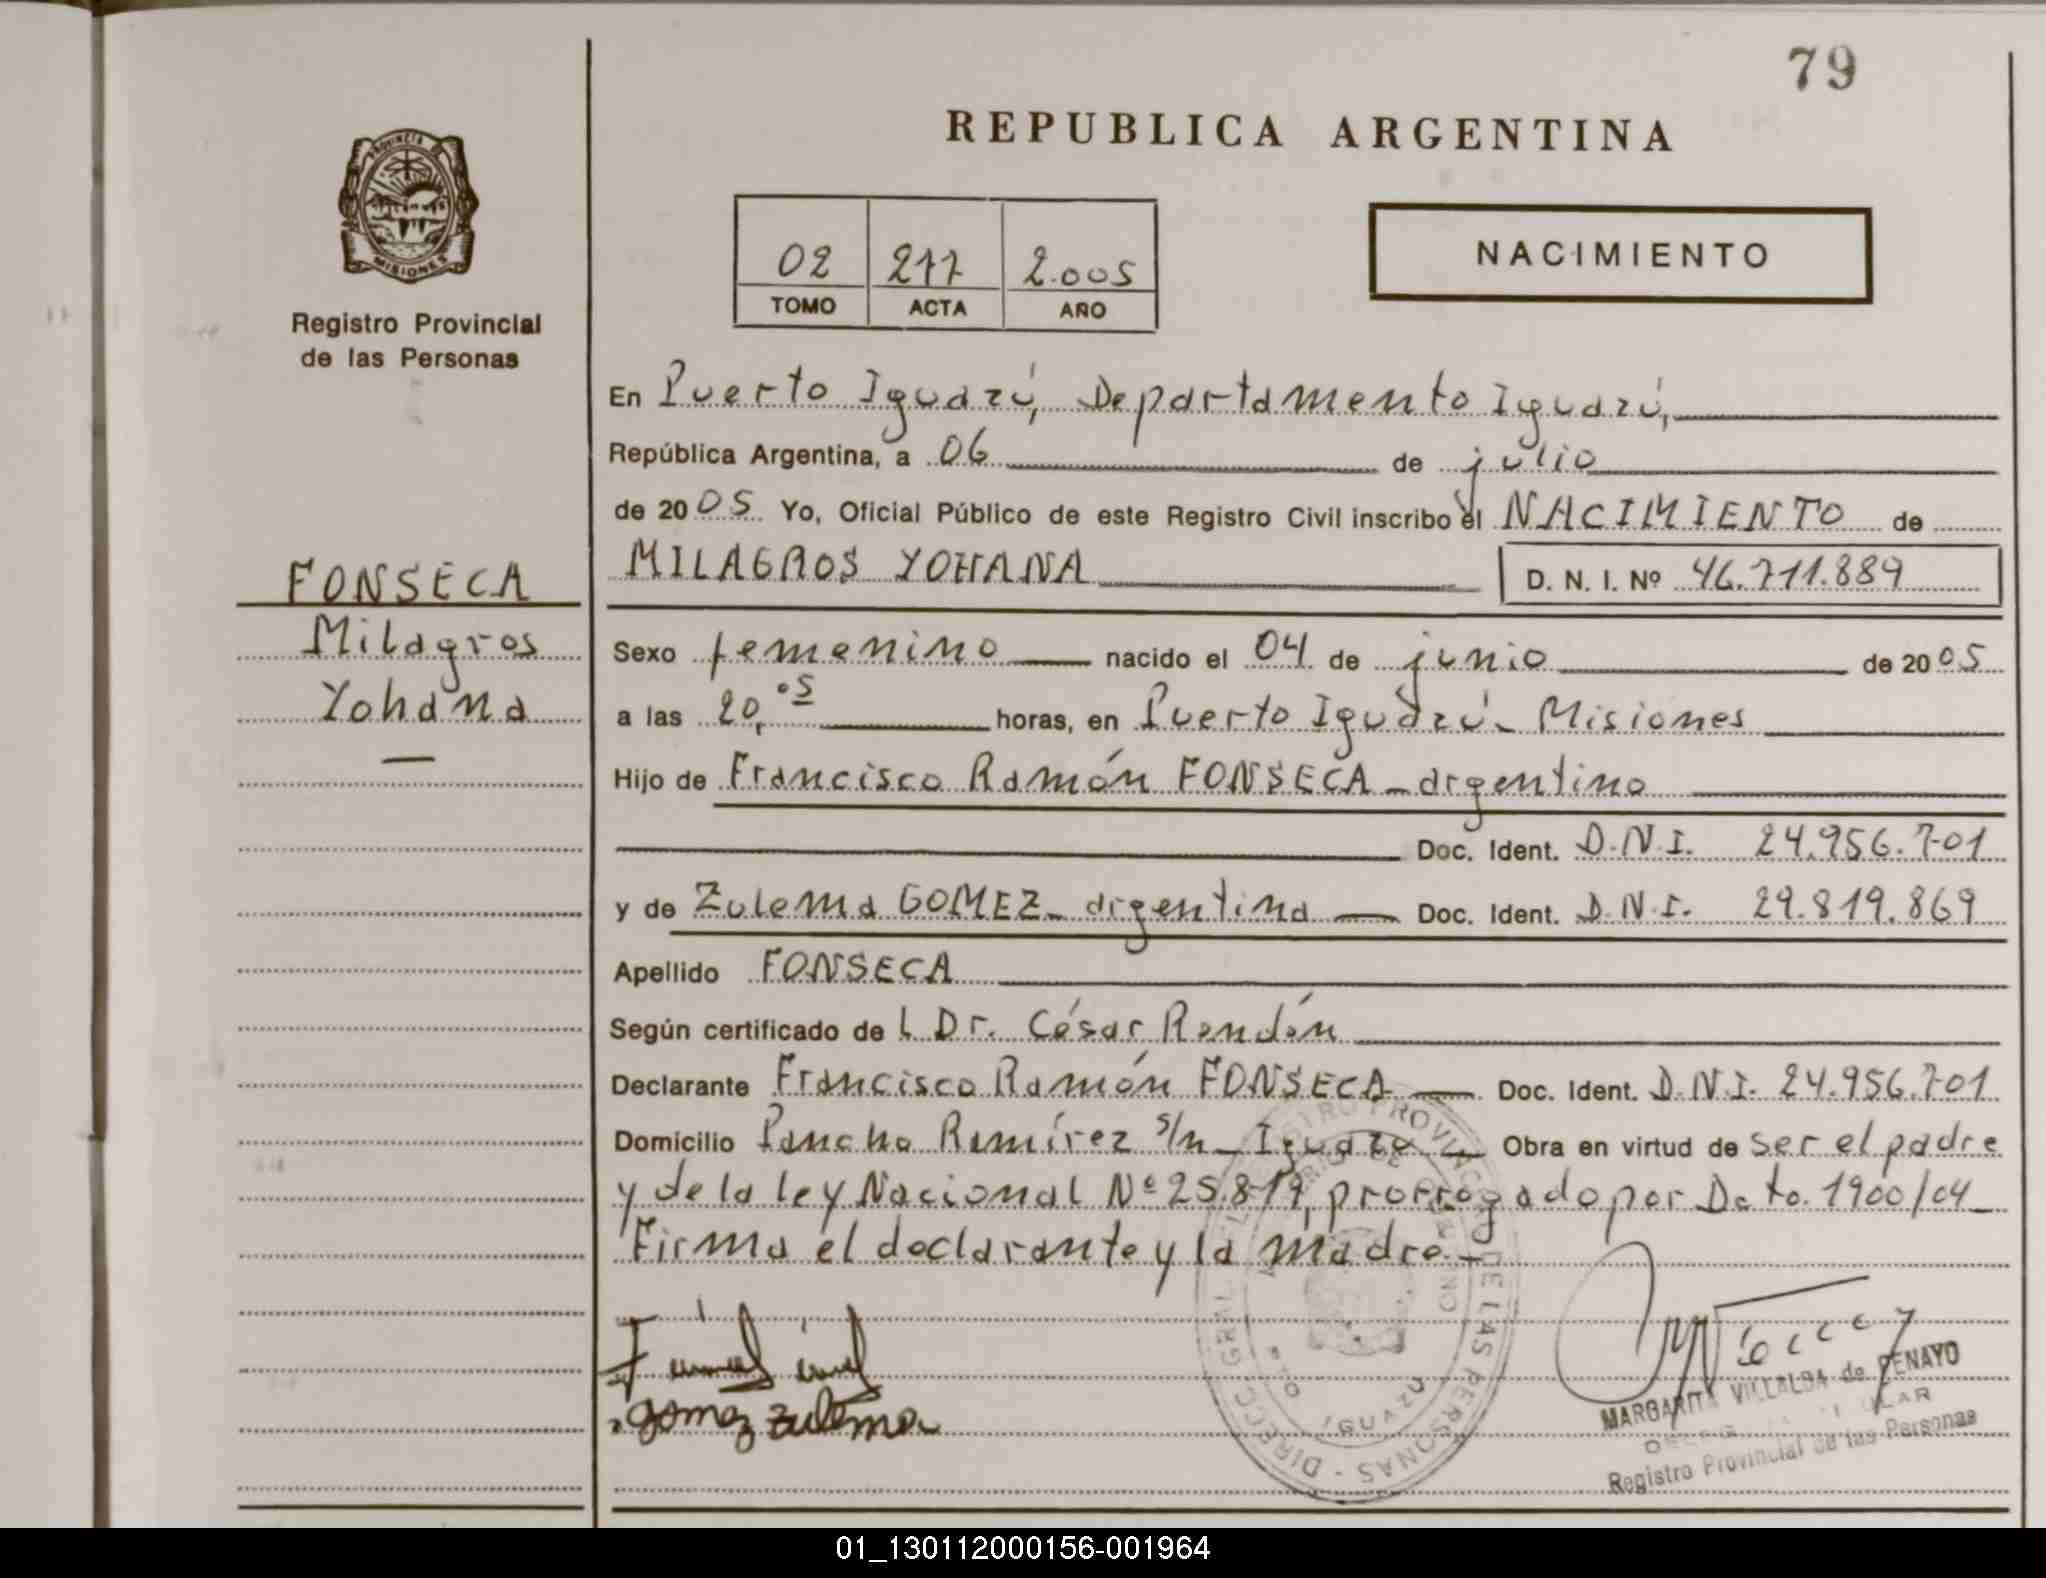 79
REPUBLICA ARGENTINA
PROVINCIA DE
MISIONES
Registro Provincial
de las Personas
02 217 2.005
TOMO ACTA AÑO
NACIMIENTO
En Puerto Iguazú, Departamento Iguazú,
República Argentina, a 06 de julio
de 2005 Yo, Oficial Público de este Registro Civil inscribo el NACIMIENTO de
MILAGROS YOHANA D. N. I. Nº 46.711.889
FONSECA
Milagros
Yohana
Sexo femenino nacido el 04 de junio de 2005
a las 20,05 horas, en Puerto Iguazú - Misiones
Hijo de Francisco Ramón FONSECA - argentino
Doc. Ident. D.N.I. 24.956.701
y de Zulema GOMEZ - argentina Doc. Ident. D.N.I. 29.819.869
Apellido FONSECA
Según certificado de l Dr. César Rondón
Declarante Francisco Ramón FONSECA Doc. Ident. D.N.I. 24.956.701
Domicilio Pancho Ramírez s/n - Iguazú Obra en virtud de ser el padre
y de la ley Nacional Nº 25.819, prorrogado por Dcto. 1900/04
Firma el declarante y la madre.-
gomez zulema
DIRECC. GRAL. DEL REGISTRO PROVINCIAL DE LAS PERSONAS
IGUAZU
MARGARITA VILLALBA de PENAYO
Registro Provincial de las Personas
01_130112000156-001964